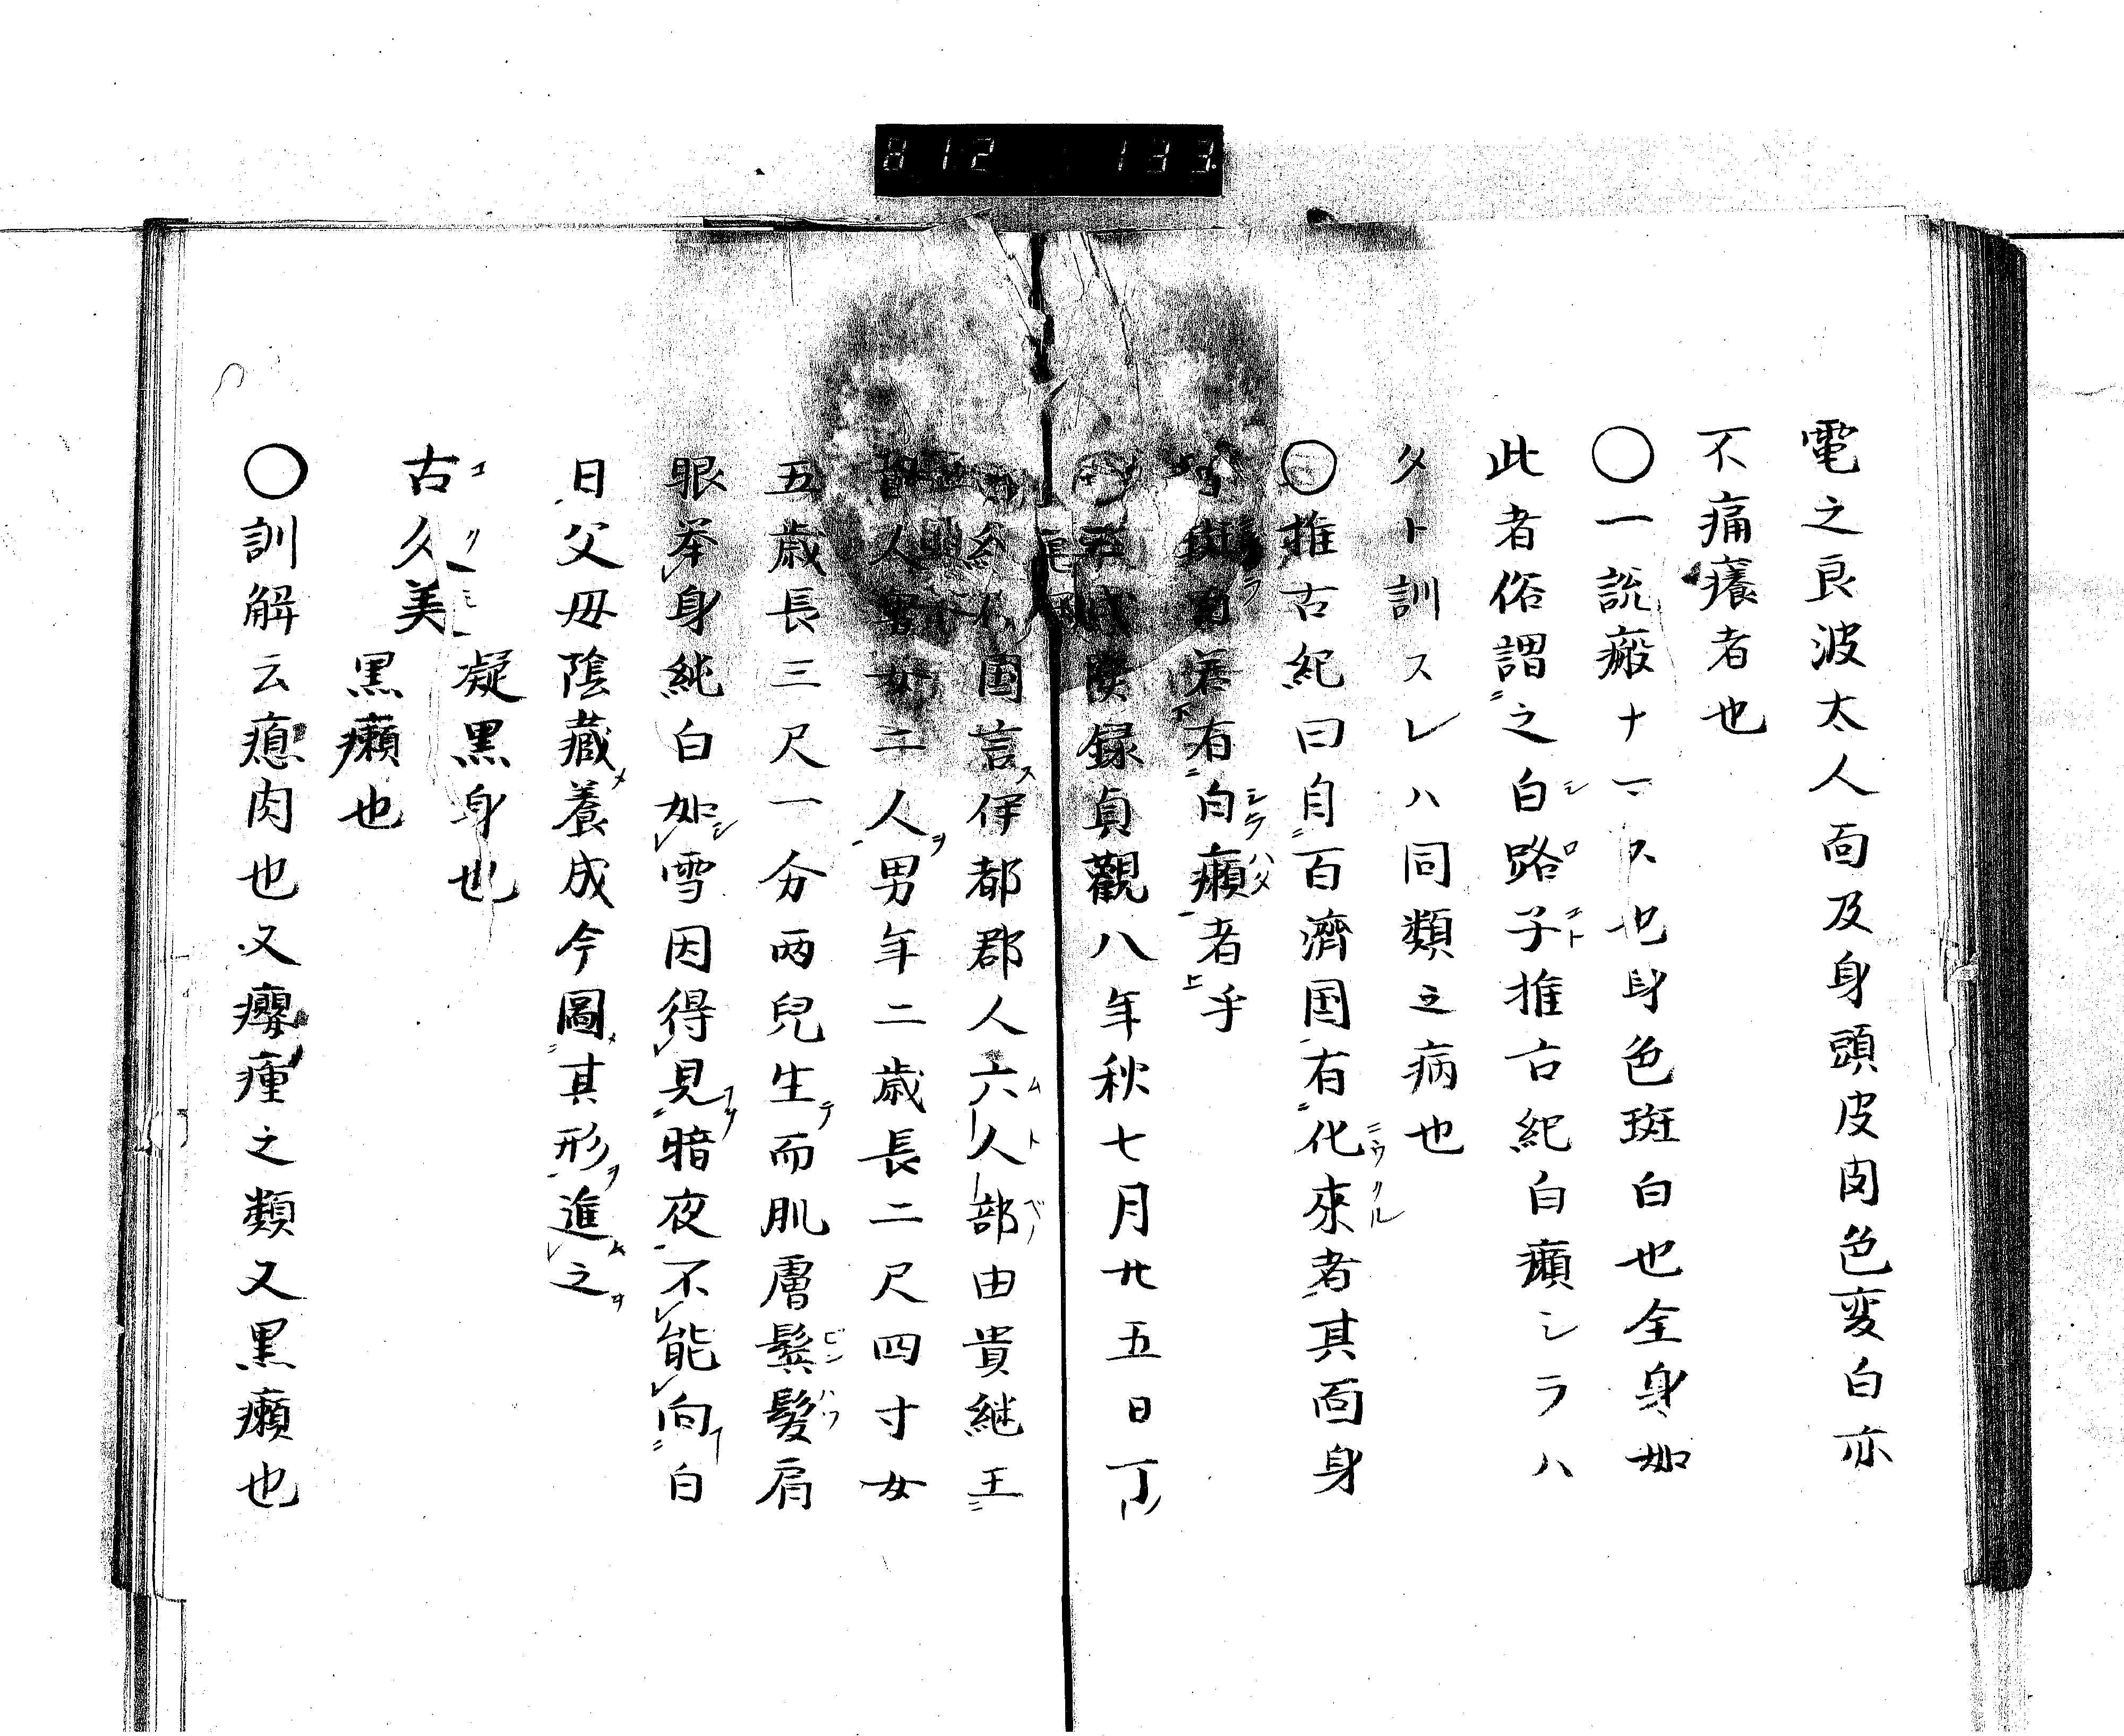 電之良波太人面及身頭皮肉色変白亦
不痛癢者也
〇一説瘢ナマス也身色斑白也全身如
此者俗謂之白路子推古紀白癩シラハ
タト訓スレハ同類之病也
〇推古紀曰自百濟国有化來者其面身
斑白若有白癩者乎
録貞觀八年秋七月廿五日丁
国言伊都郡人六人部由貴継王
人男女二人男年二歳長二尺四寸女
五歳長三尺一分両兒生而肌膚鬢髮肩
眼举身純白如雪因得見暗夜不能向白
日父母陰藏養成今圖其形進之
古久美
凝黒身也
黒癩也
〇訓解云瘜肉也又癭瘇之類又黒癩也
812 133